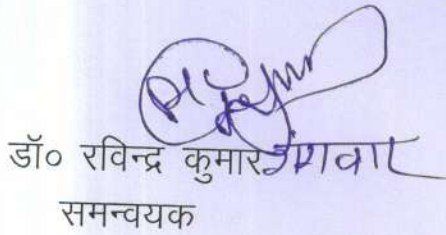 डॉ० रविन्द्र कुमार गंगवार
समन्वयक